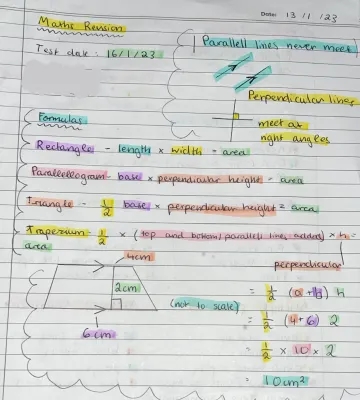 Date: 13/1/23
Maths Revision
Test date: 16/1/23
Parallell lines never meet
Perpendicular lines
meet at
right angles
Formulas
Rectangle - length x width = area
Parallellogram - base x perpendicular height = area
Triangle - 1/2 base x perpendicular height = area
Trapezium - 1/2 x (top and bottom/parallel lines added) x h =
area
perpendicular
4cm
2cm
6cm
(not to scale)
= 1/2 (a+b) h
= 1/2 (4+6) 2
= 1/2 x 10 x 2
= 10cm²